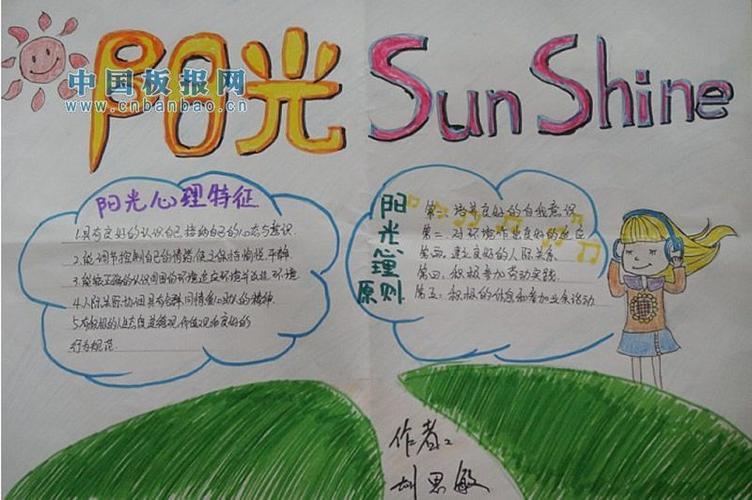 阳光 Sun Shine
中国板报网
www.cnbanbao.cn
阳光心理特征
1.具有良好的认识自己接纳自己的心态与意识.
2.能调节控制自己的情绪,使之保持愉悦、平静.
3.能较正确的认识周围的环境适应环境并改造环境
4.人际关系协调具有合群同情爱心助人的精神.
5.有积极的人生态度道德观,价值观和良好的
行为规范.
阳光
原则
第一:培养良好的自我意识
第二:对环境
良好的适应
第四.建立良好的人际关系
第四:积极参加劳动实践
第五:积极的休息和参加业余活动.
作者:
刘思敏